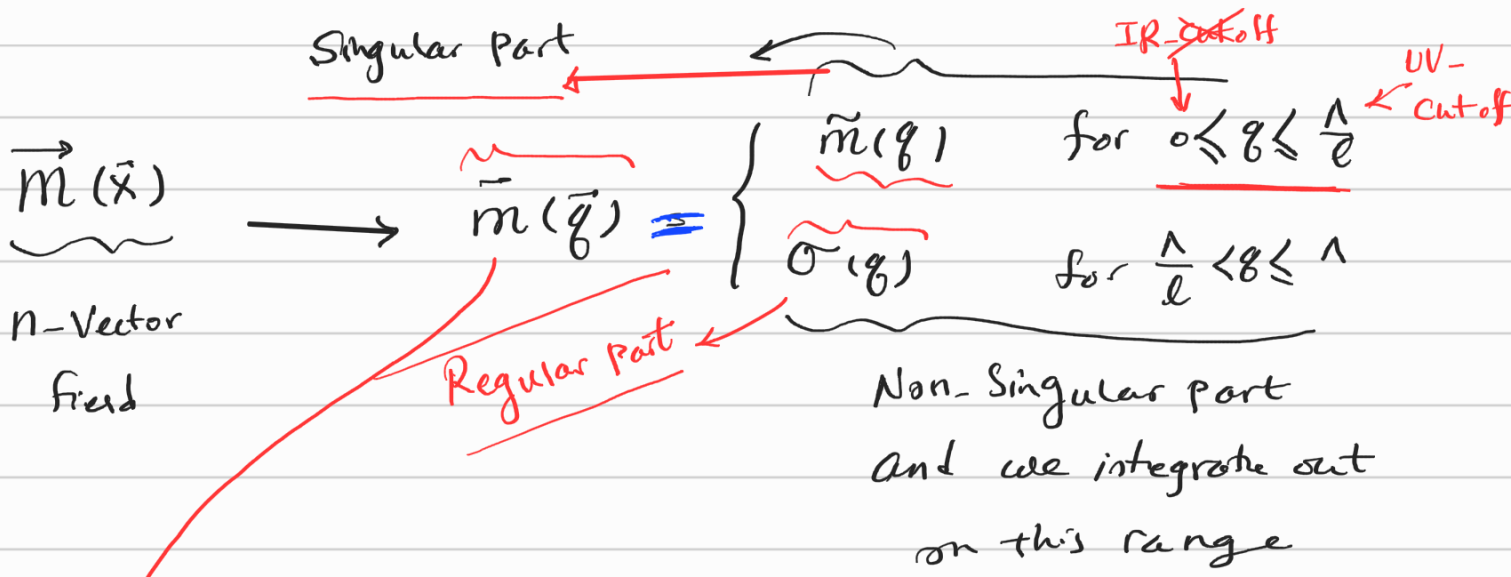 Singular Part
IR-cutoff
UV-
cutoff
m⃗(x⃗) ⟶ m⃗(q⃗) = { m̃(q) for 0 ≤ q ≤ Λ/ℓ
σ(q) for Λ/ℓ < q ≤ Λ
n-Vector
field
Regular part
Non-Singular part
and we integrate out
on this range